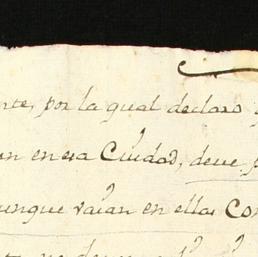 nte, por la qual declaro
an en esa Ciudad, deve
unque vaian en ellas Con